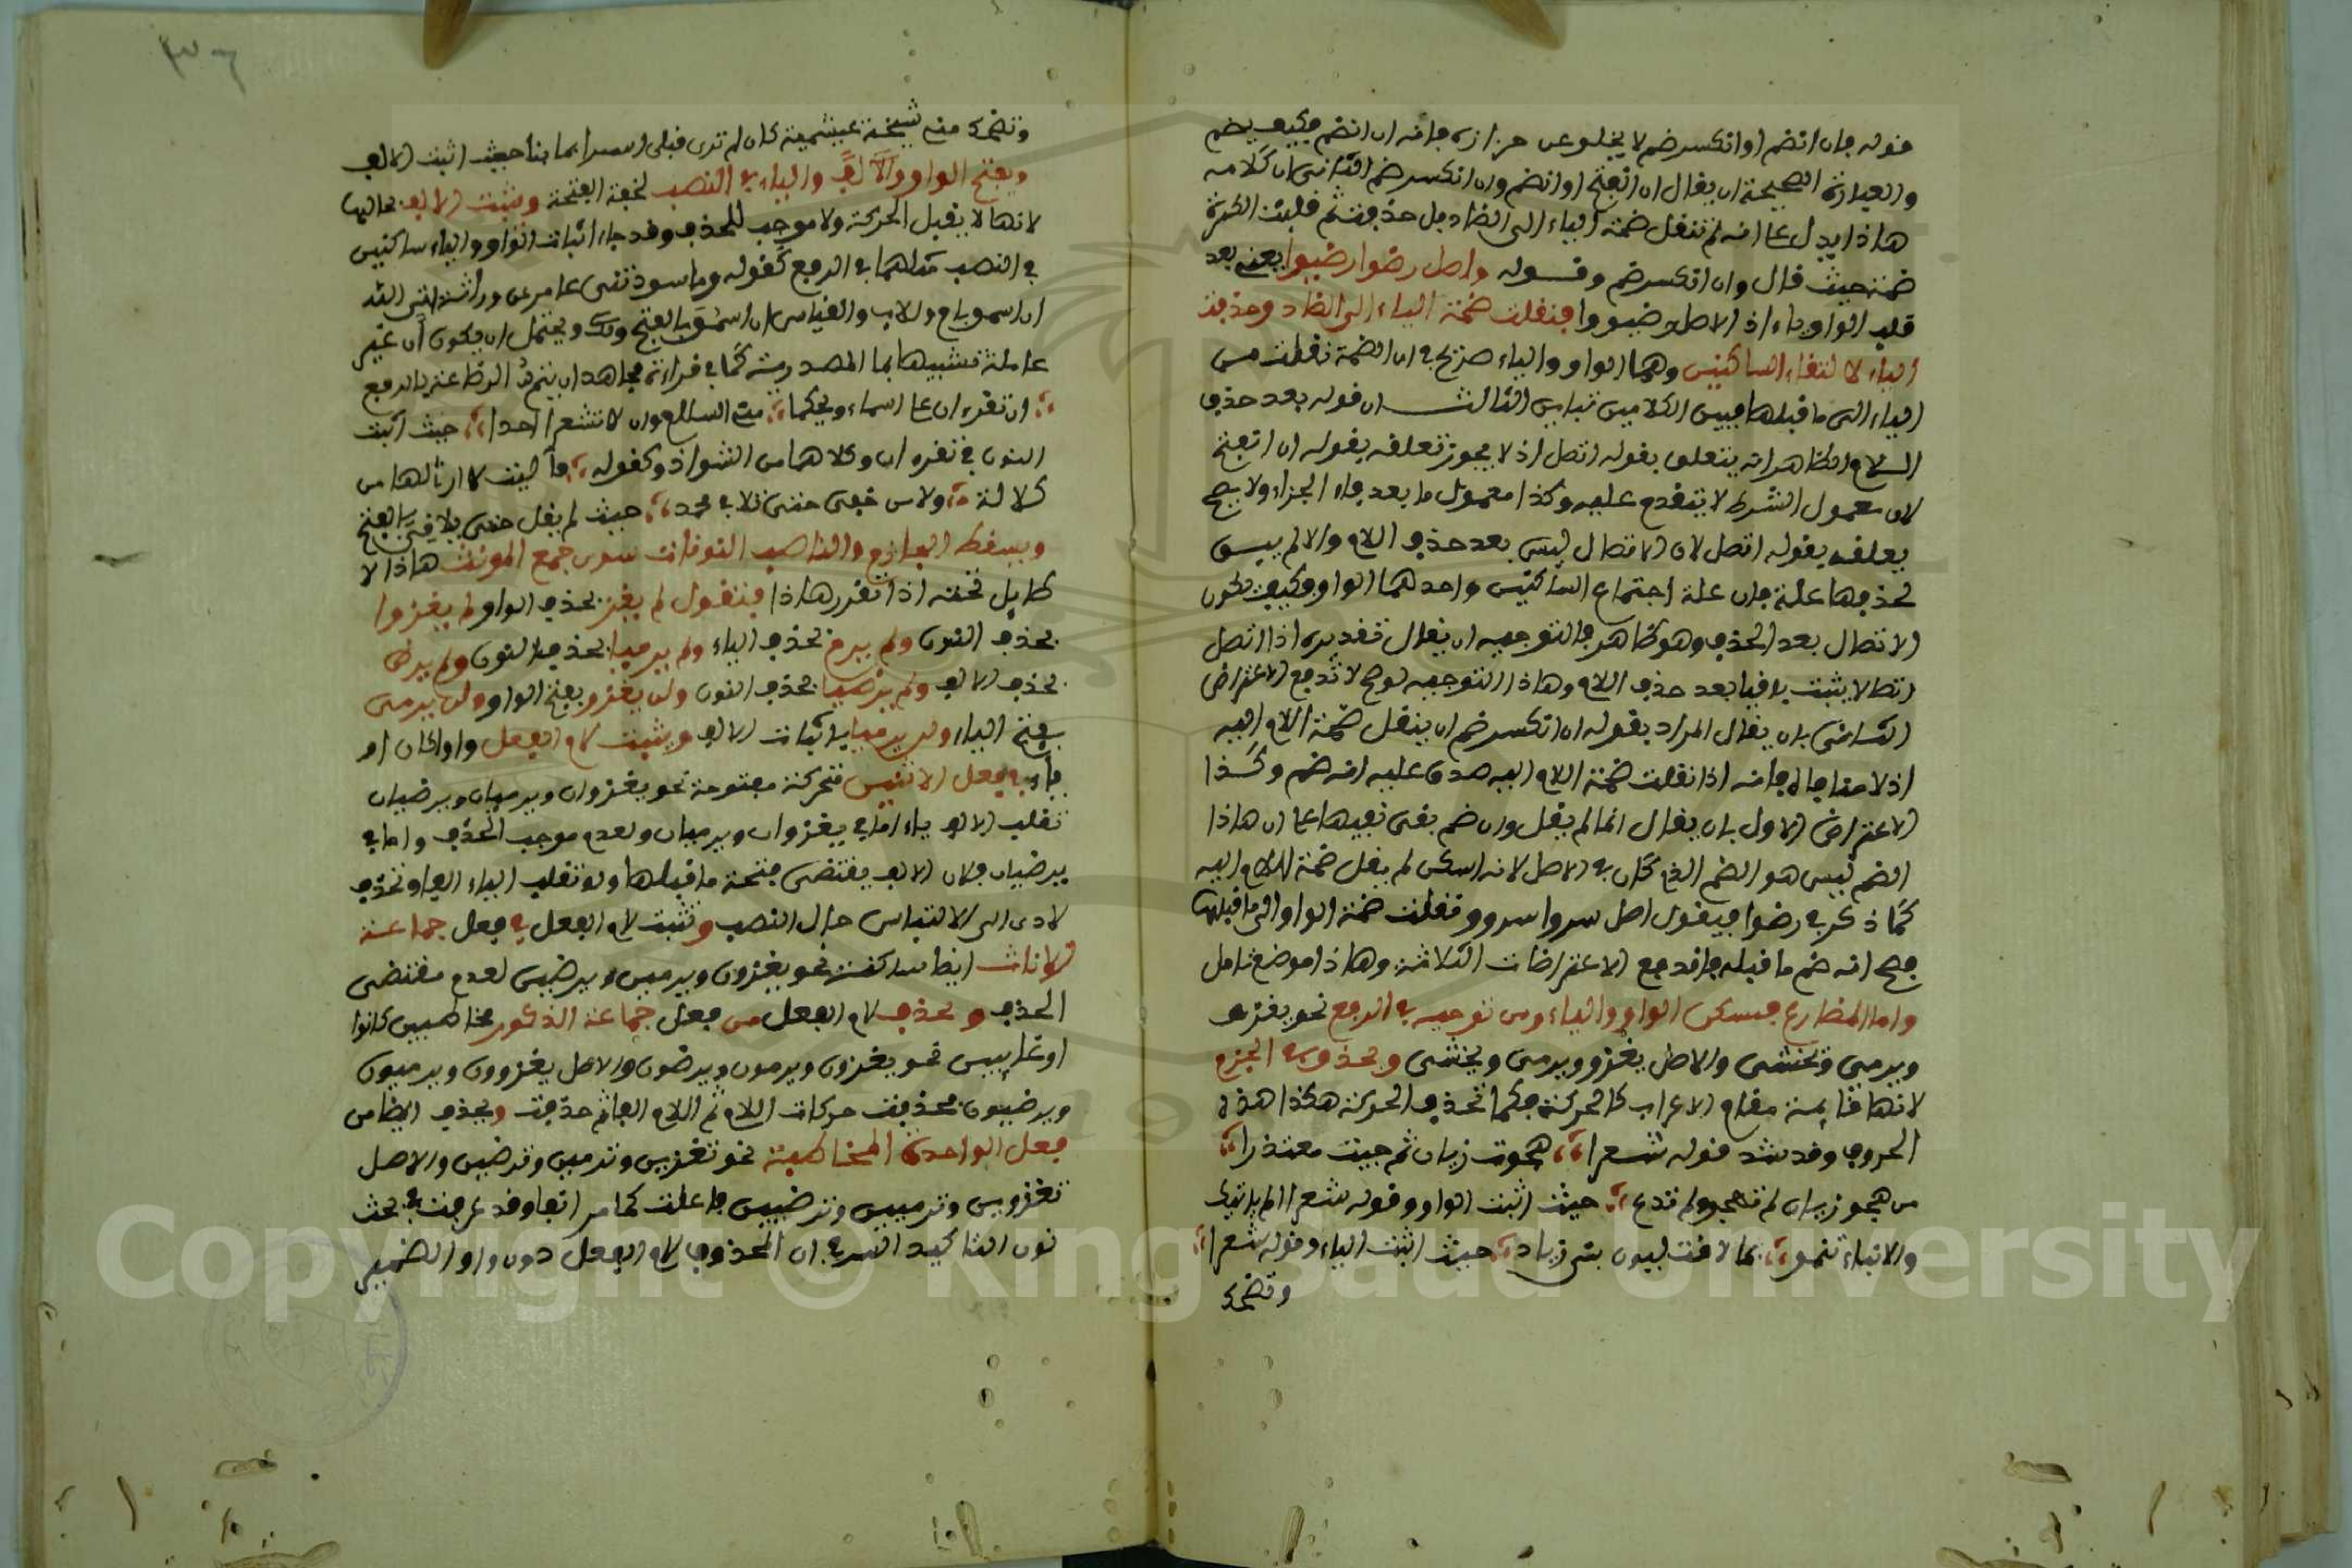 قوله فان انضم او انكسر ضم لا يخلو عن حزازة فانه ان انضم فكيف يضم
والعبارة الصحيحة ان يقال ان انفتح او انضم وان انكسر ضم الثاني ان كلامه
هاذا يدل على انه لم تنقل ضمة الياء الى الضاد بل حذفت ثم قلبت الكسرة
ضمة حيث قال وان انكسر ضم وقوله واصل رضوا رضيوا يعني بعد
قلب الواو ياء اذ الاصل رضيووا فنقلت ضمة الياء الى الضاد وحذفت
الياء لالتقاء الساكنين وهما الواو والياء صريح في ان الضمة نقلت من
الياء الى ما قبلها فبين الكلامين تباين الثالث ان قوله بعد حذف
اللام الظاهر انه يتعلق بقوله اتصل اذ لا يجوز تعلقه بقوله ان انفتح
لان معمول الشرط لا يتقدم عليه وكذا معمول ما بعد فاء الجزاء ولا يصح
تعلقه بقوله اتصل لان الاتصال ليس بعد حذف اللام والا لم يبق
لحذفها علة فان علة اجتماع الساكنين واحدهما الواو فكيف يكون
الاتصال بعد الحذف وهو ظاهر فالتوجيه ان يقال تقديره اذا اتصل
اتصالا يثبت باقيا بعد حذف اللام وهاذا التوجيه لو صح لاندفع الاعتراض
الثاني بان يقال المراد بقوله ان انكسر ضم ان ينقل ضمة اللام اليه
اذ لا منافاة فانه اذا نقلت ضمة اللام اليه صدق عليه انه ضم وكذا
الاعتراض الاول بان يقال انما لم يقل وان ضم بقي تنبيها على ان هاذا
الضم ليس هو الضم الذي كان في الاصل لانه اسكن ثم نقل ضمة اللام اليه
كما ذكر في رضوا فيقول اصل سروا سرووا نقلت ضمة الواو الى ما قبلها
فصح انه ضم ما قبله فاندفع الاعتراضات الثلاثة وهاذا موضع تامل
واما المضارع فتسكن الواو والياء ومن توجيه في الرفع نحو يغزو
ويرمي ويخشى والاصل يغزو ويرمي ويخشي ويحذفن في الجزم
لانها قايمة مقام الاعراب كالحركة فكما تحذف الحركة هكذا هذه
الحروف وقد شذ قوله شعرا هجوت زبان ثم جيت معتذرا
من هجو زبان لم تهجو ولم تدع حيث اثبت الواو وقوله شعرا الم ياتيك
والانباء تنمو بما لاقت لبون بني زياد حيث اثبت الياء وقوله شعرا
وتضحك
وتضحك مني شيخة عبشمية كان لم ترى قبلي اسيرا يمانيا حيث اثبت الالف
ويفتح الواو والياء في النصب لخفة الفتحة وتثبت الالف بحالها
لانها لا يقبل الحركة ولا موجب للحذف وقد جاء اثبات الواو والياء ساكنين
في النصب مثلهما في الرفع كقوله وما سودتني عامر عن وراثة ابى الله
ان اسمو بام ولا اب والقياس ان اسمو بالفتح وذلك ويحتمل ان يكون ان غير
عاملة تشبيها بما المصدرية كما في قراءة مجاهد ان يتم الرضاعة بالرفع
ان تقرءان على اسماء ويحكما مني السلام وان لا تشعرا احدا حيث اثبت
النون في تقرءان وكلاهما من الشواذ وكقوله فآليت لا ارثي لها من
كلالة ولا من حفى حتى تلاقي محمدا حيث لم يقل حتى تلاقي بالفتح
ويسقط الجازم والناصب النونات سوى جمع المونث هاذا لا
طايل تحته اذا تقرر هاذا فنقول لم يغز بحذف الواو ولم يغزوا
بحذف النون ولم يرم بحذف الياء ولم يرميا بحذف النون ولم يرض
بحذف الالف ولم يرضيا بحذف النون ولن يغزو بفتح الواو ولن يرمي
بفتح الياء ولن يرضى باثبات الالف ويثبت لام الفعل واوا كان او
ياء في فعل الاثنين متحركة مفتوحة نحو يغزوان ويرميان ويرضيان
تقلب الالف ياء اما في يغزوان ويرميان ولعدم موجب الحذف واما في
يرضيان فلان الالف يقتضي فتحة ما قبلها ولو تقلب الياء الفا وتحذف
لادى الى الالتباس حال النصب وتثبت لام الفعل في فعل جماعة
الاناث ايضا ساكنة نحو يغزون ويرمين ويرضين لعدم مقتضي
الحذف ويحذف لام الفعل من فعل جماعة الذكور مخاطبين كانوا
او غايبين نحو يغزون ويرمون ويرضون والاصل يغزوون ويرميون
ويرضيون فحذفت حركات اللام ثم اللام حذفت ويحذف ايضا من
فعل الواحدة المخاطبة نحو تغزين وترمين وترضين والاصل
تغزوين وترميين وترضيين فاعلت كما مر انفا وقد عرفت في بحث
نون التاكيد السر في ان المحذوف لام الفعل دون واو الضمير
Copyright © King Saud University